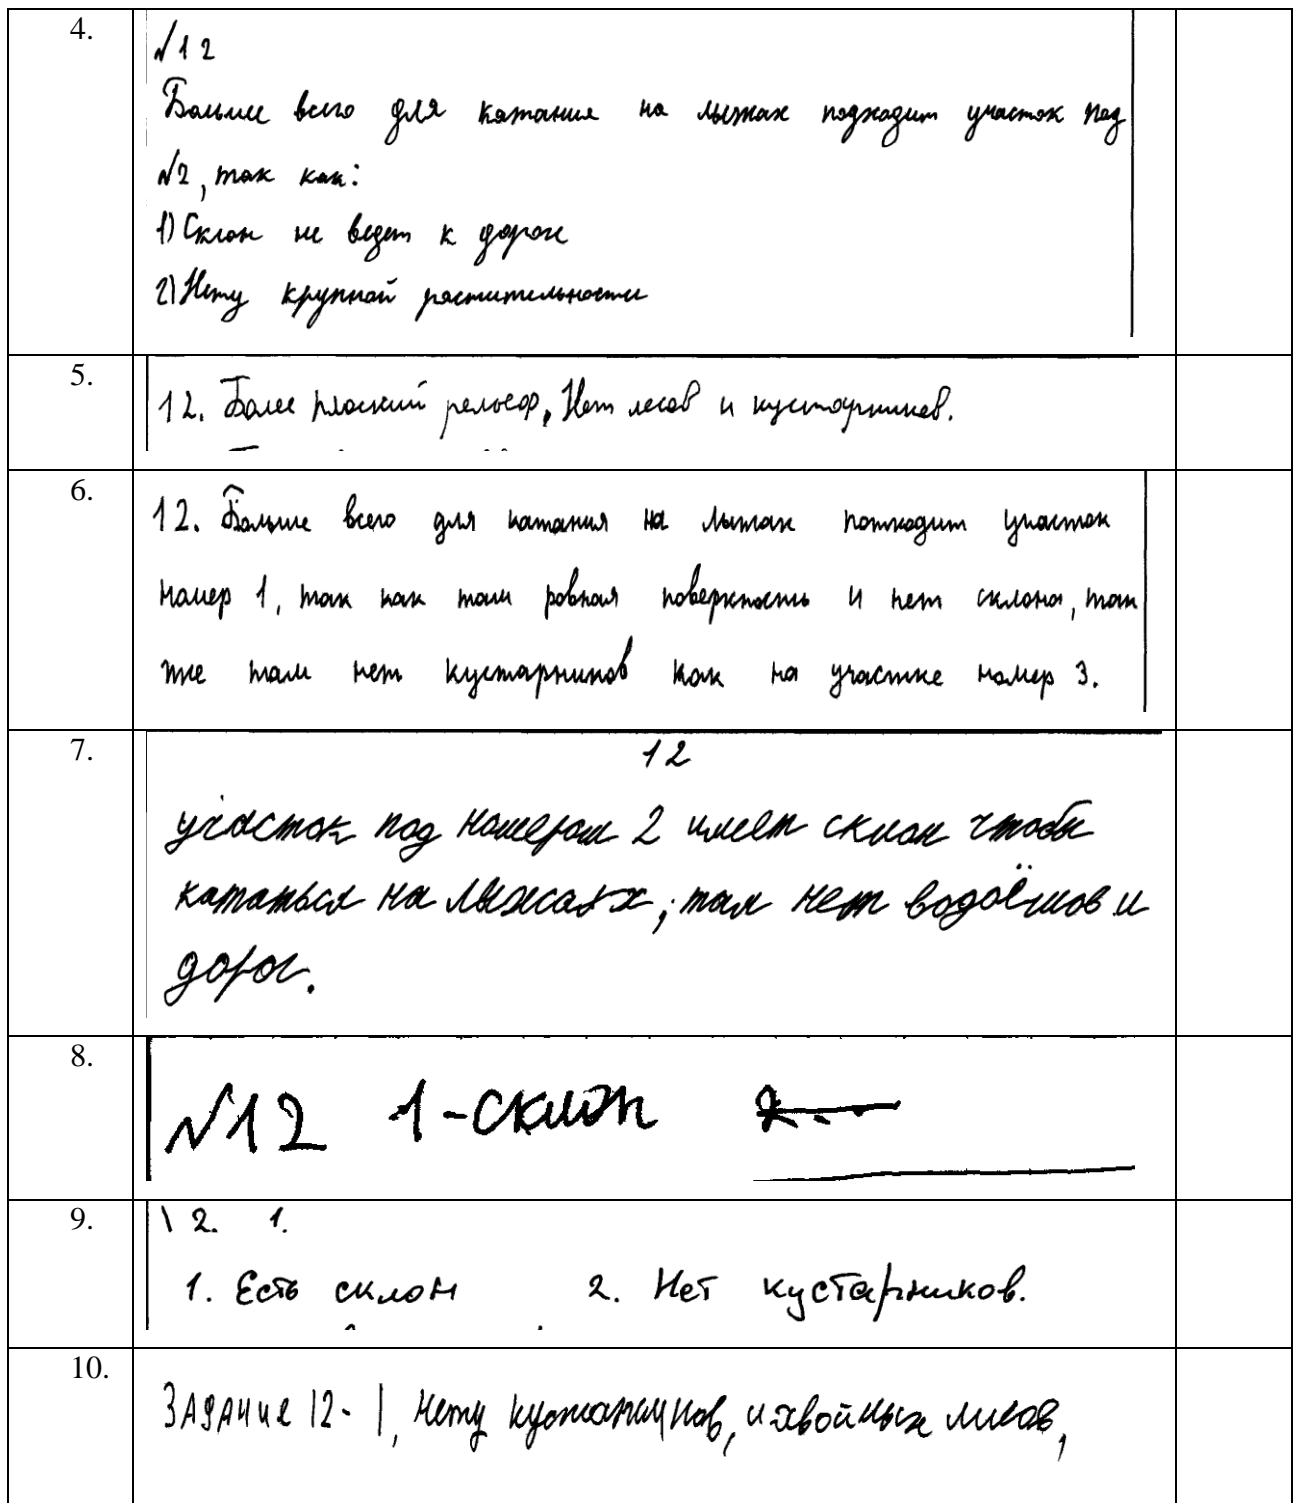 4.
№12
Больше всего для катания на лыжах подходит участок под
№2, так как:
1) Склон не ведет к дороге
2) Нету крупной растительности
5.
12. Более плоский рельеф, Нет лесов и кустарников.
6.
12. Больше всего для катания на лыжах потходит участок
номер 1, так как там ровная поверхность и нет склона, так
же там нет кустарников как на участке номер 3.
7.
12
участок под номером 2 имеет склон чтобы
кататься на лыжах, там нет водоёмов и
дорог.
8.
№12 1-склон
9.
12. 1.
1. Есть склон 2. Нет кустарников.
10.
ЗАДАНИЕ 12- 1, нету и хвойных лисов,